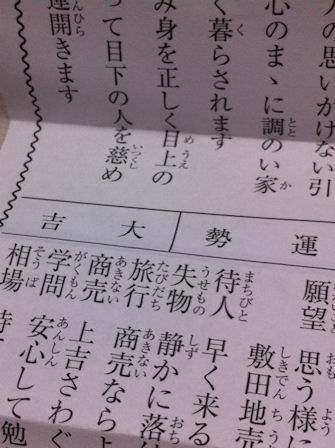 の思いがけない引
心のまゝに調のい家
く暮らされます
み身を正しく目上の
って目下の人を慈め
運開きます
運勢
大吉
願望 思う様に
敷田地売
待人 早く来る
失物 静かに落
旅行 商売なら上
商売 上吉さわぐ
学問 安心して勉
相場